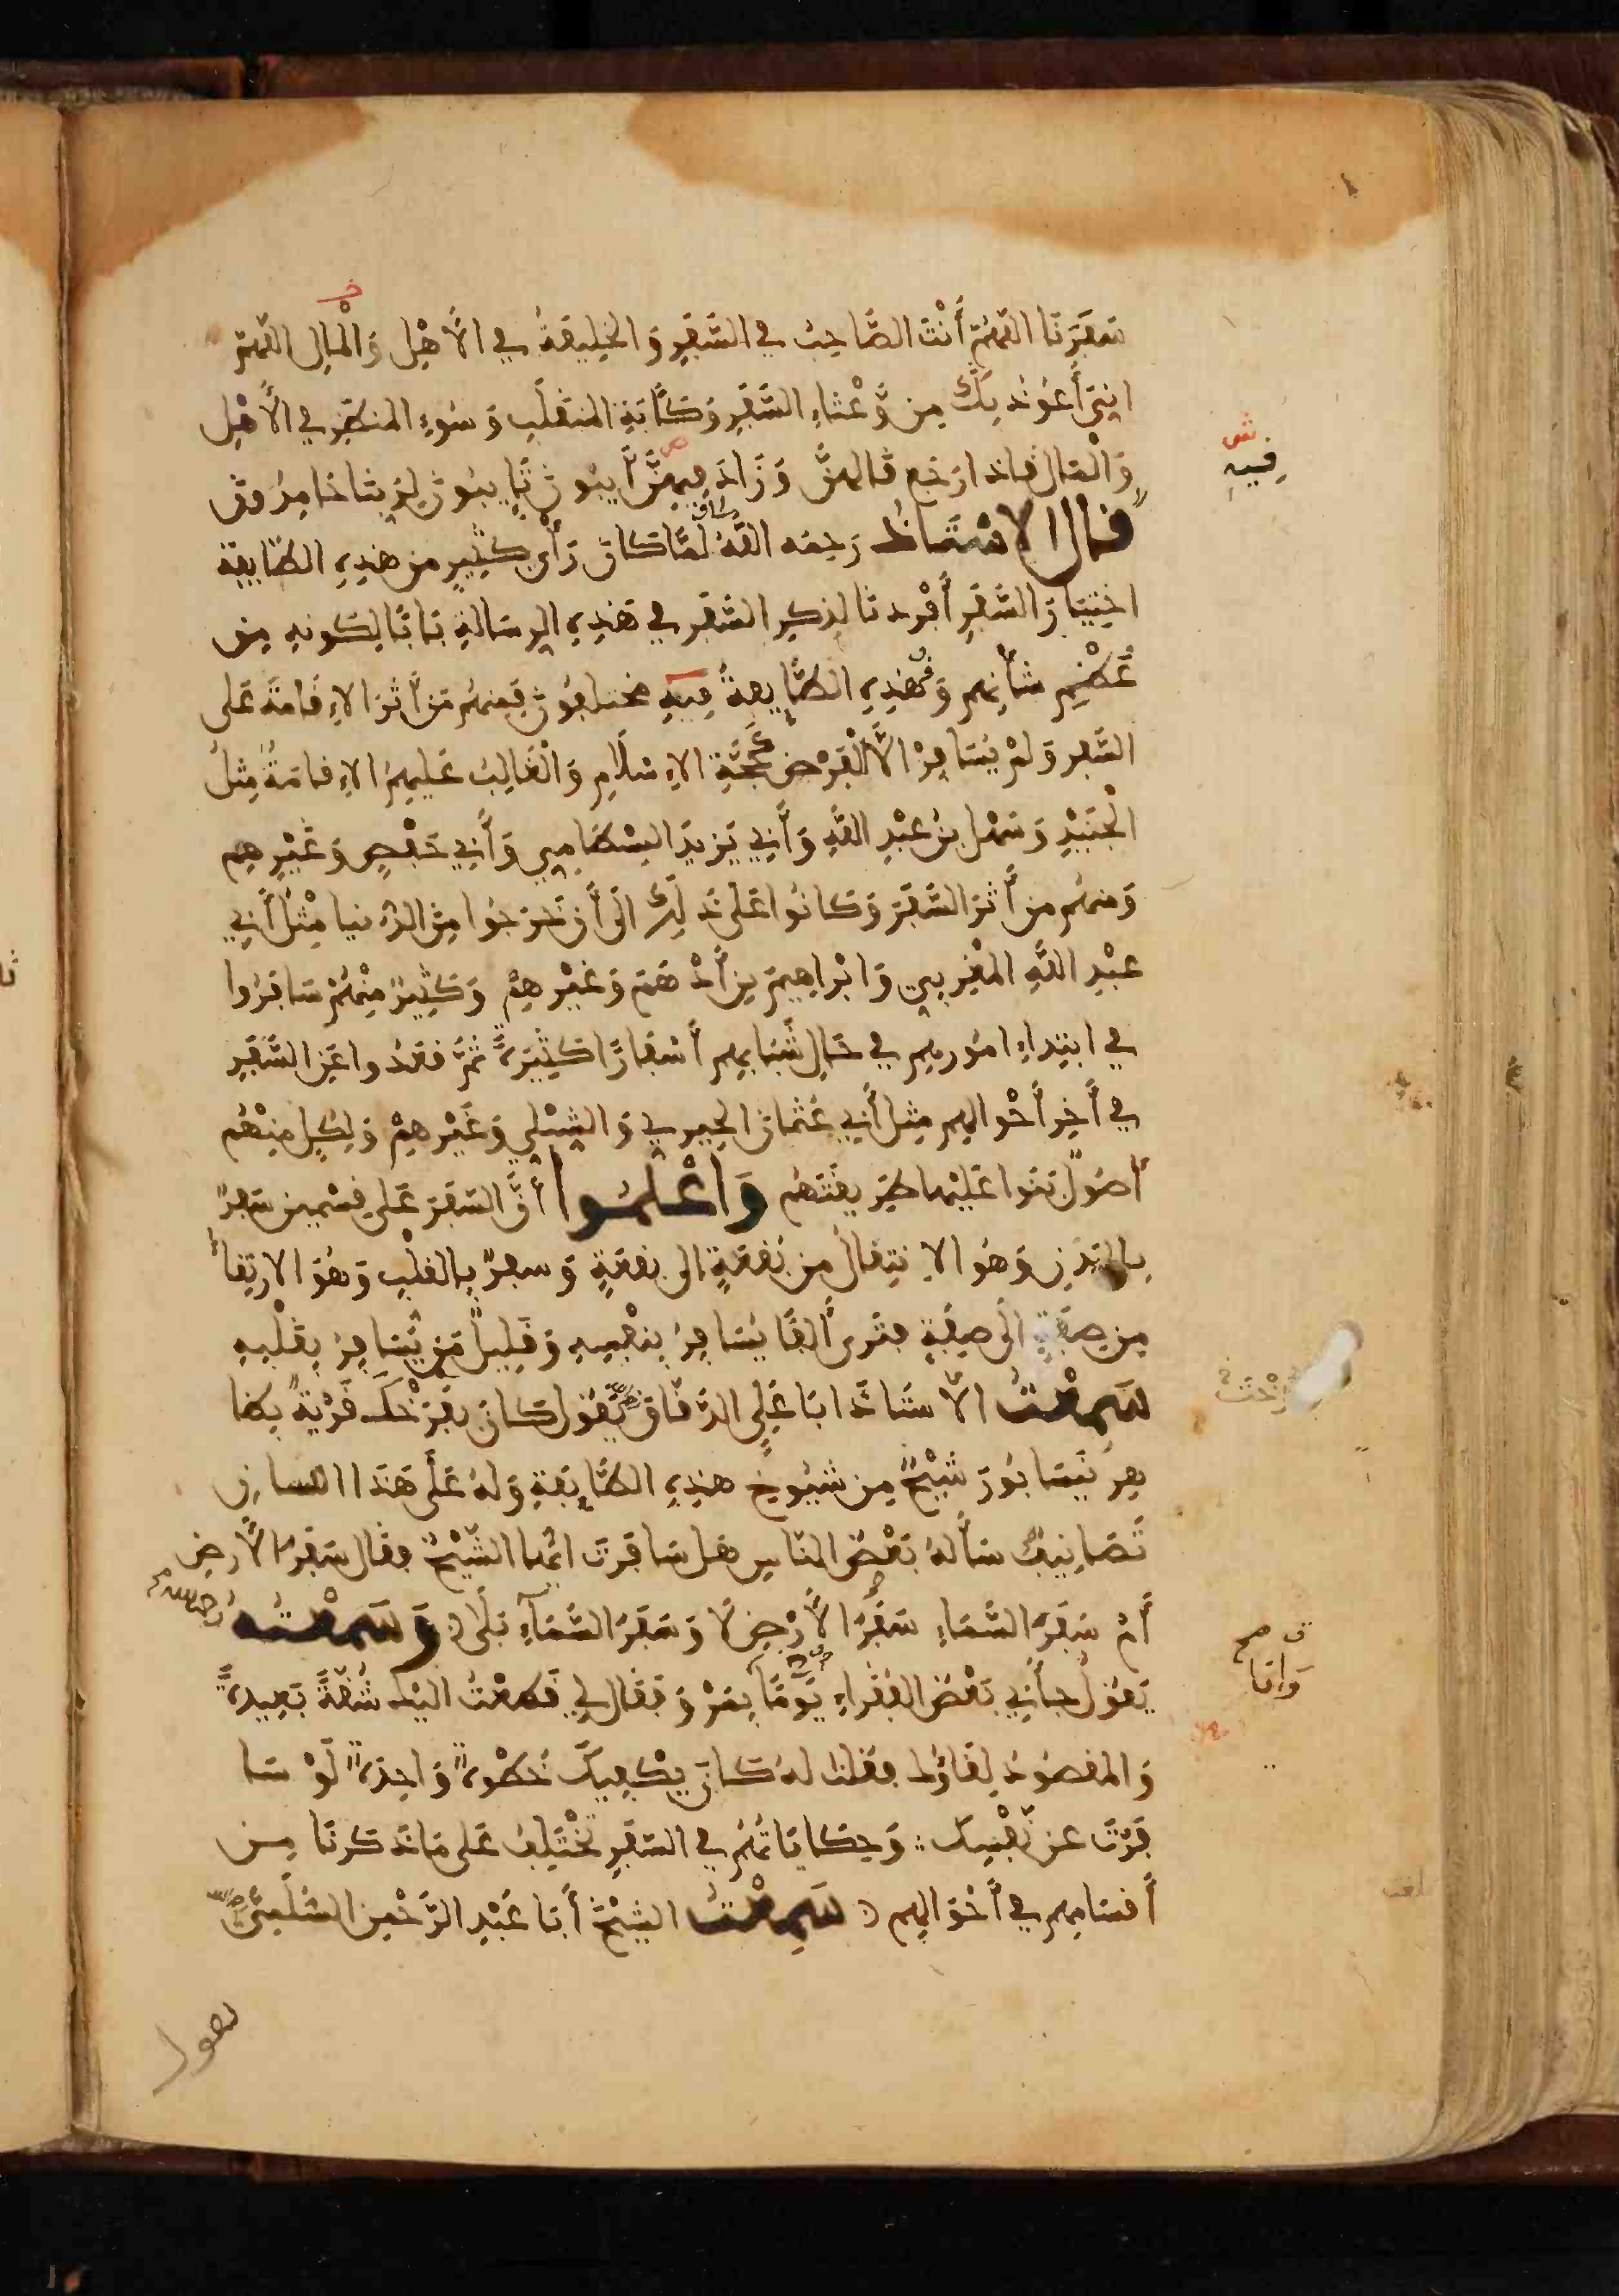 سَفَرَنَا اللَّهُمَّ أَنْتَ الصَّاحِبُ فِي السَّفَرِ وَالخَلِيفَةُ فِي الأَهْلِ وَالْمَالِ اللَّهُمَّ
انِّي أَعُوذُ بِكَ مِن وَّعْثَاءِ السَّفَرِ وَكَآبَةِ المُنقَلَبِ وَسُوءِ المَنظَرِ فِي الأَهْلِ
وَالْمَالِ فَاذا رَجَعَ قَالَهُنَّ وَزَادَ فِيهِنَّ آيِبُونَ تَايِبُونَ لِرَبِّنَا حَامِدُونَ
فيه
قال الاسْتَاذُ رَحِمَه اللَّهُ لَمَّا كَانَ رَأْيُ كَثِيرٍ مِن هَذِهِ الطَّايِفَةِ
اخْتِيَارَ السَّفَرِ أَفْرَدنَا لِذِكرِ السَّفَرِ فِي هَذِهِ الرِسَالَةِ بَابًا لِكَونِهِ مِن
عُظْمِ شَأْنِهِم وَهَذِهِ الطَّايِفَةُ فِيهِ مُختَلِفُونَ فَمِنهُم مَن آثَرَ الاِقَامَةَ عَلى
السَّفَرِ وَلَمْ يُسَافِرْ الاَّ لْفَرْضٍ كَحَجَّةِ الاِسْلَامِ وَالْغَالِبُ عَلَيهِمُ الاِقَامَةُ مِثْلُ
الْجُنَيْدِ وَسَهْلِ بنِ عَبْدِ اللَّهِ وَأَبِي يَزِيدَ البِسْطَامِيِ وَأَبِي حَفْصٍ وَغَيْرِهِم
وَمنهُم مَن آثَرَ السَّفَرَ وَكَانُوا عَلَى ذَلِكَ الَى أَن خَرَجُوا مِنَ الدُّنيا مِثْلُ أَبِي
عَبْدِ اللَّهِ المَغْرِبِيِ وَابْرَاهِيمَ بنِ أَدْهَمَ وَغَيْرِهِمْ وَكَثِيرٌ مِنْهُمْ سَافَرُوا
فِي ابتِدَاءِ امُورِهِم فِي حَالِ شَبَابِهِم أَسْفَارًا كَثِيرَةً ثُمَّ قَعَدُوا عَنِ السَّفَرِ
فِي آخِرِ أَحْوَالِهِم مِثلُ أَبِي عُثْمَانَ الحِيرِيِ وَالشِّبْلِي وَغَيْرِهِمْ وَلِكُلٍ مِنْهُم
أُصُولٌ بَنَوا عَلَيْهَا طَرِيقَتَهُم وَاعْلَمُوا أَنَّ السَفَرَ عَلى قِسْمَينِ سَفَرٌ
بِالبَدَنِ وَهُو الاِنتِقَالُ مِن بُقْعَةٍ الى بقعَةٍ وَسَفَرٌ بِالقَلْبِ وَهُوَ الارتِقَاءُ
مِن صِفَةٍ الَى صِفَةٍ فتَرَى أَلفًا يُسَافِرُ بِنَفْسِهِ وَقَلِيلٌ مَن يُسَافِرُ بِقَلْبِهِ
سَمِعْتُ الاُسْتَاذَ ابَا عَلِيٍ الدَّقَّاقَ يَقُولُ كَانَ بفَرَخْكَ قَرْيَةٌ بِظَا
هِرِ نَيسَابُورَ شَيْخٌ مِن شُيُوخِ هذِهِ الطَّايِفَةِ وَلَهُ عَلَى هَذَا اللسانِ
تَصَانِيفُ سَأَلَهُ بَعْضُ النَّاسِ هَل سَافَرتَ ايُّهَا الشَّيْخُ فقَال سَفَرُ الأَرضِ
أَمْ سَفَرُ السَّمَاءِ سَفَرُ الأَرْضِ لَا وَسَفَرُ السَّمَآءِ بَلَى وَسَمِعْتُهُ
يَقُولُ جَاءَنِي بَعْضُ الفُقَرَاءِ يَوْمًا بِمَرْوَ فَقَال لِي قَطَعْتُ اليكَ شُقَّةً بَعِيدَةً
وَانَا صح
وَالمَقصُودُ لِقَاؤُكَ فقُلتُ لَهُ كَانَ يَكْفِيكَ خُطْوَةً وَاحِدَةً لَوْ سَا
فَرْتَ عَن نَّفْسِكَ وَحِكَايَاتُهُم فِي السَفَرِ تَخْتَلِفُ عَلى مَا ذَكَرنَا مِن
أَقسَامِهِم فِي أَحْوَالِهِم سَمِعْتُ الشَيْخَ أَبَا عَبْدِ الرَّحْمَنِ السُّلَمِيَّ
يقول